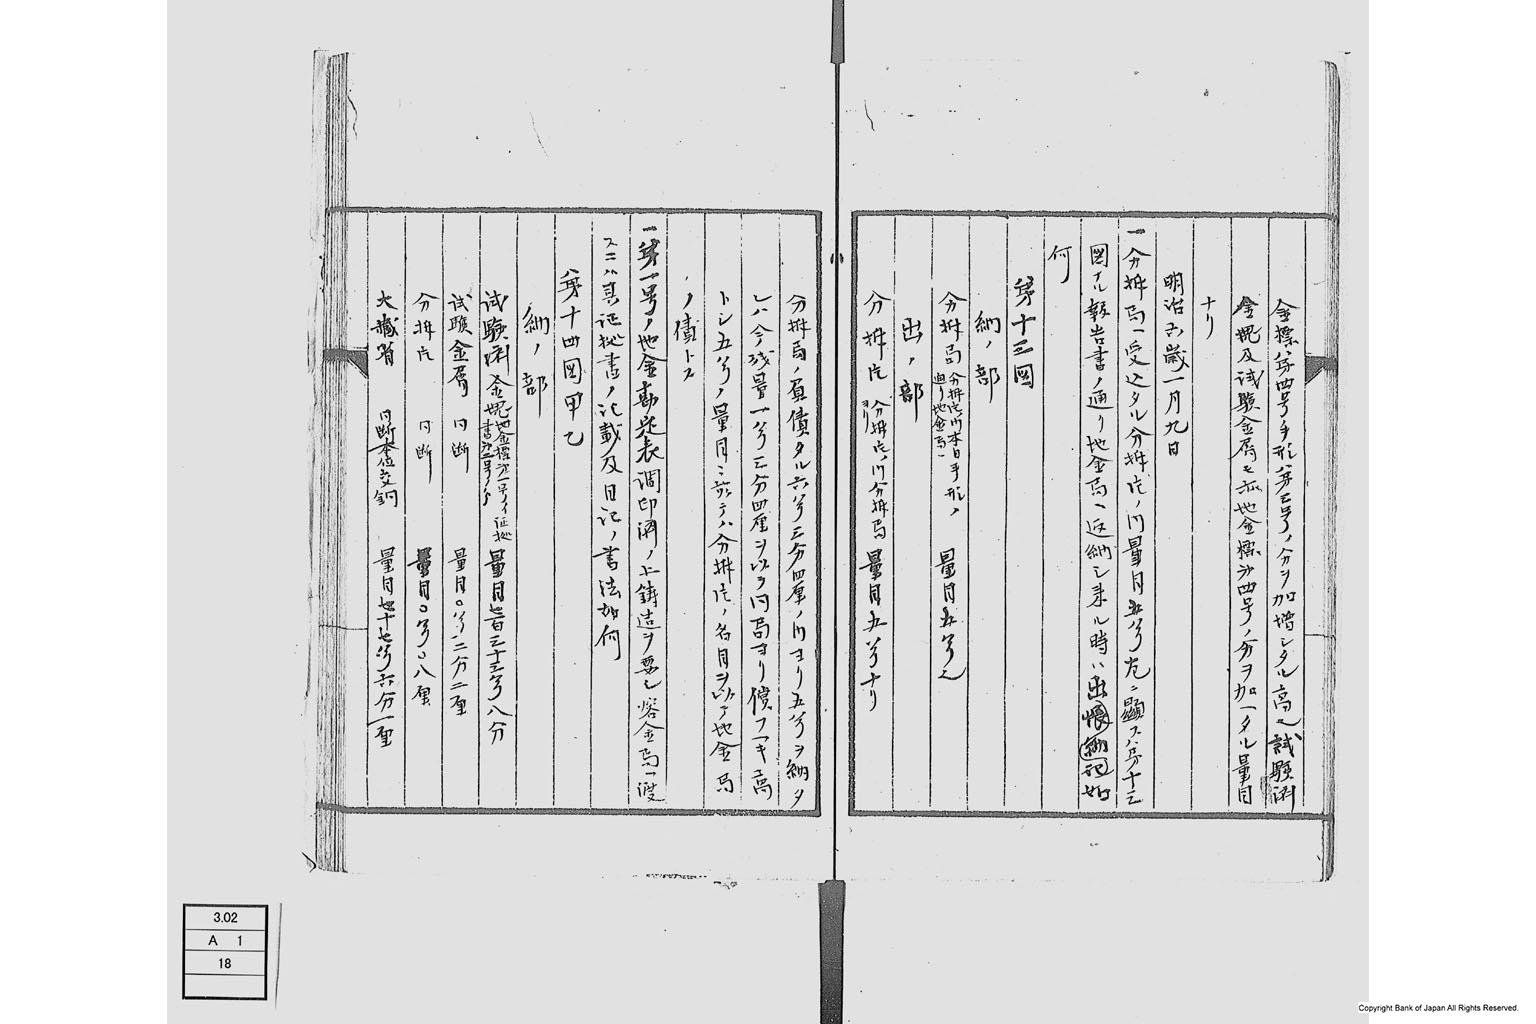 金標第四号手形第三号ノ分ヲ加増シタル高也試験済
金塊及試験金屑モ亦地金標第四号ノ分ヲ加ヘタル量目
ナリ
明治六歳一月九日
一分拆局ヘ受込タル分拆片ノ内量目五分左ニ顕ス第十三
図ナル報告書ノ通リ地金局ヘ返納シ来ル時ハ出帳納記如
何
第十三図
納ノ部
分拆局 分拆片ノ内本日手形ノ
通リ地金局ヘ 量目五分也
出ノ部
分拆片 分拆片ノ内分拆局
ヨリ 量目五分ナリ
分拆局ノ負債タル六分三分四厘ノ内ヨリ五分ヲ納タ
レハ今残量一分三分四厘ヲ以テ同局ヨリ償フヘキ高
トシ五分ノ量目ニ於テハ分拆片ノ名目ヲ以テ地金局
ノ債トス
一第一号ノ地金勘定表調印済ノ上鋳造ヲ要シ熔金局ヘ渡
スニハ其証拠書ノ記載及日記ノ書法如何
第十四図甲乙
納ノ部
試験済金塊 地金標第一号ノイ証拠
書第二号ノ分 量目七百三十三分八分
試験金屑 同断 量目〇分二分二厘
分拆片 同断 量目〇分〇八厘
大蔵省 同断本位交銅 量目七十七分六分一厘
3.02
A 1
18
Copyright Bank of Japan All Rights Reserved.